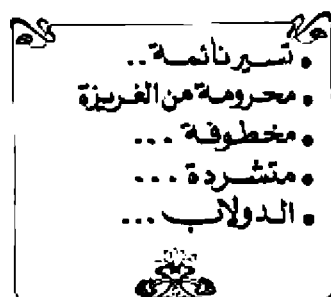 • تسير نائمة..
• محرومة من الغريزة
• مخطوفة...
• متشردة...
• الدولاب...